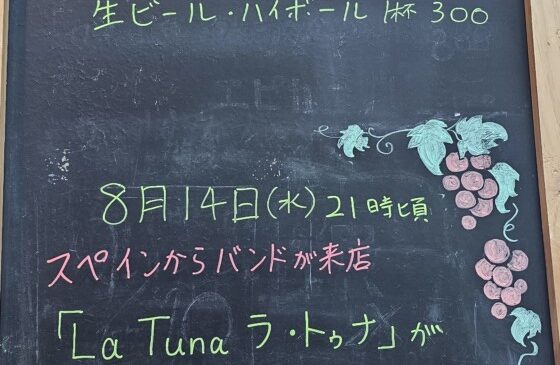 生ビール・ハイボール 1杯 300
8月14日(水) 21時頃
スペインからバンドが来店
「La Tuna ラ・トゥナ」が